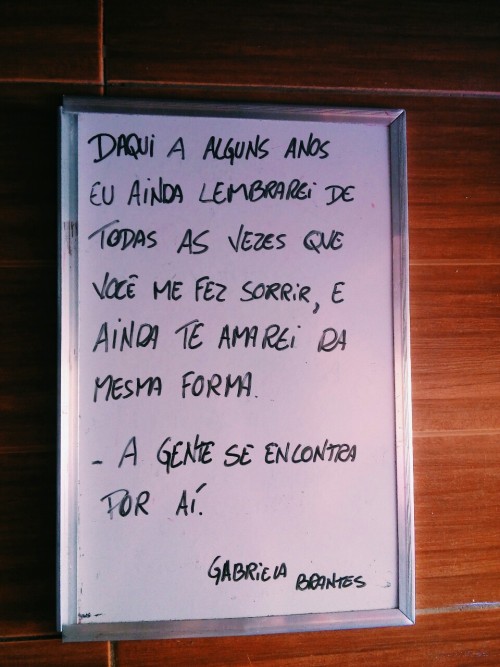 DAQUI A ALGUNS ANOS
EU AINDA LEMBRAREI DE
TODAS AS VEZES QUE
VOCÊ ME FEZ SORRIR, E
AINDA TE AMAREI DA
MESMA FORMA.
- A GENTE SE ENCONTRA
POR AÍ.
GABRIELA BRANTES